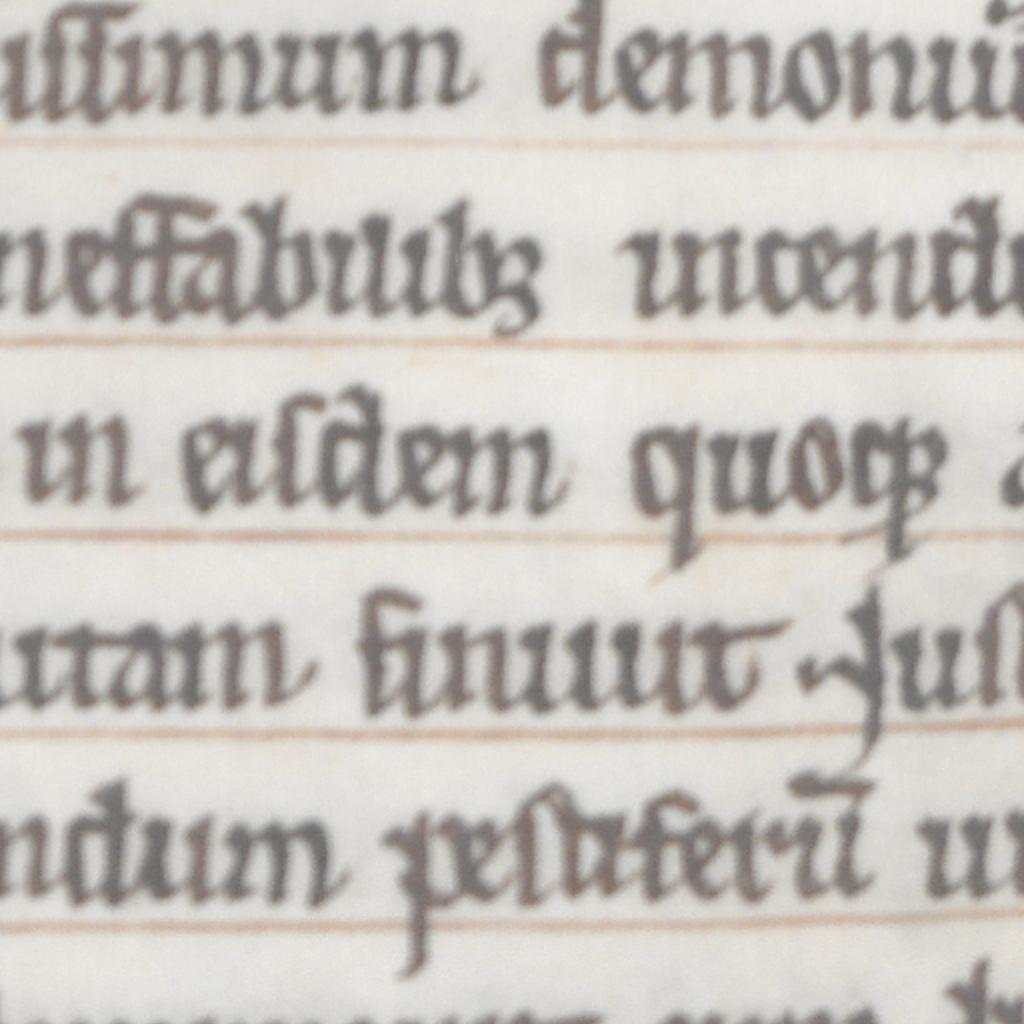 issimum demoniu
neffabilibꝫ incendi
in eisdem quoqꝫ a
uitam finiuit Jus
ndum pestiferū ui